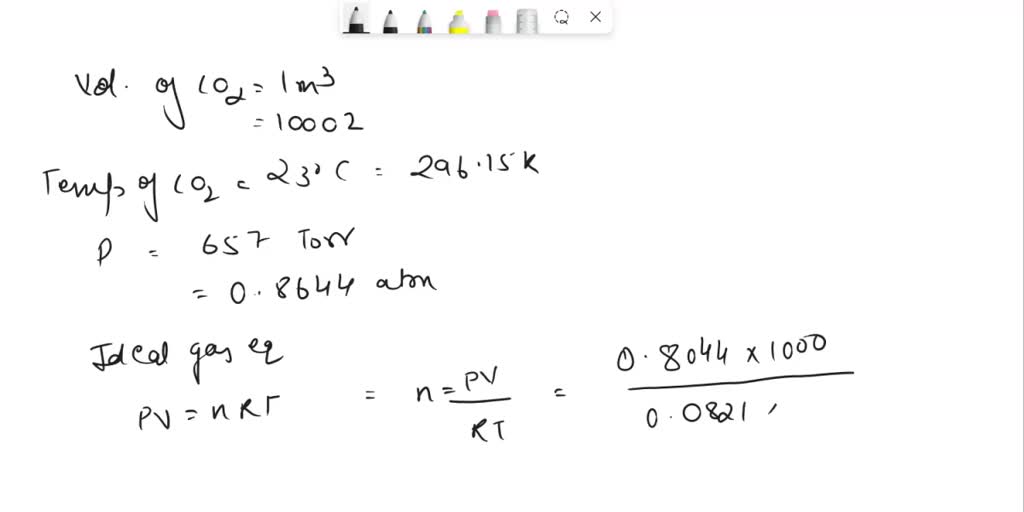 Vol. of CO2 = 1m3
= 1000L
Temp of CO2 = 23°C = 296.15K
P = 657 Torr
= 0.8644 atm
Ideal gas eq
PV = nRT = n = PV/RT = 0.8044 x 1000 / 0.0821